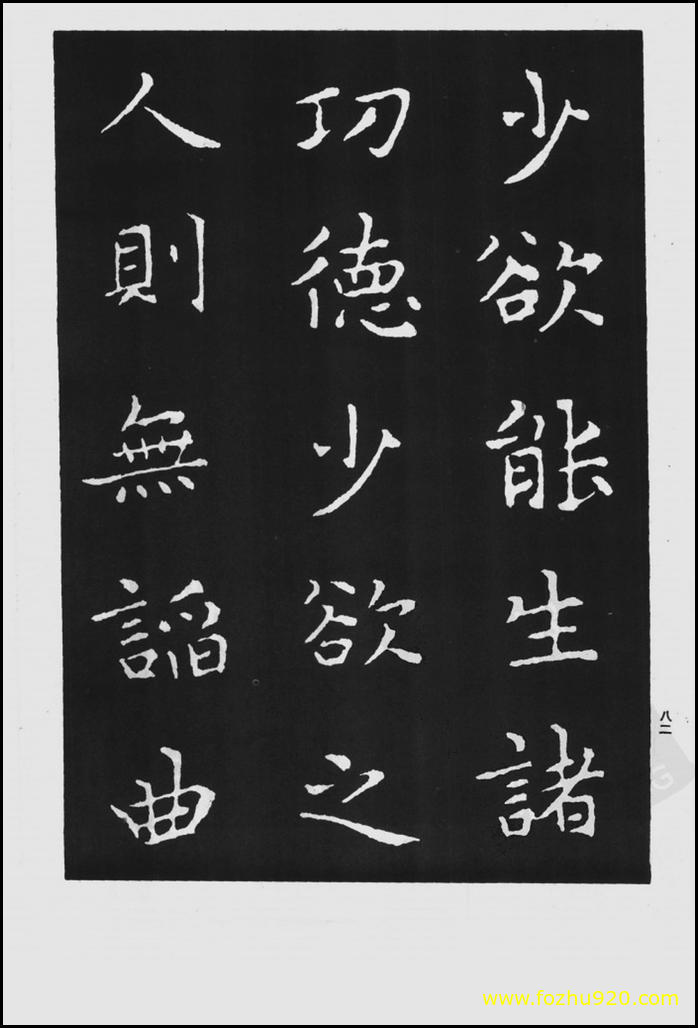 少欲能生諸
功德少欲之
人則無謟曲
八二
www.fozhu920.com